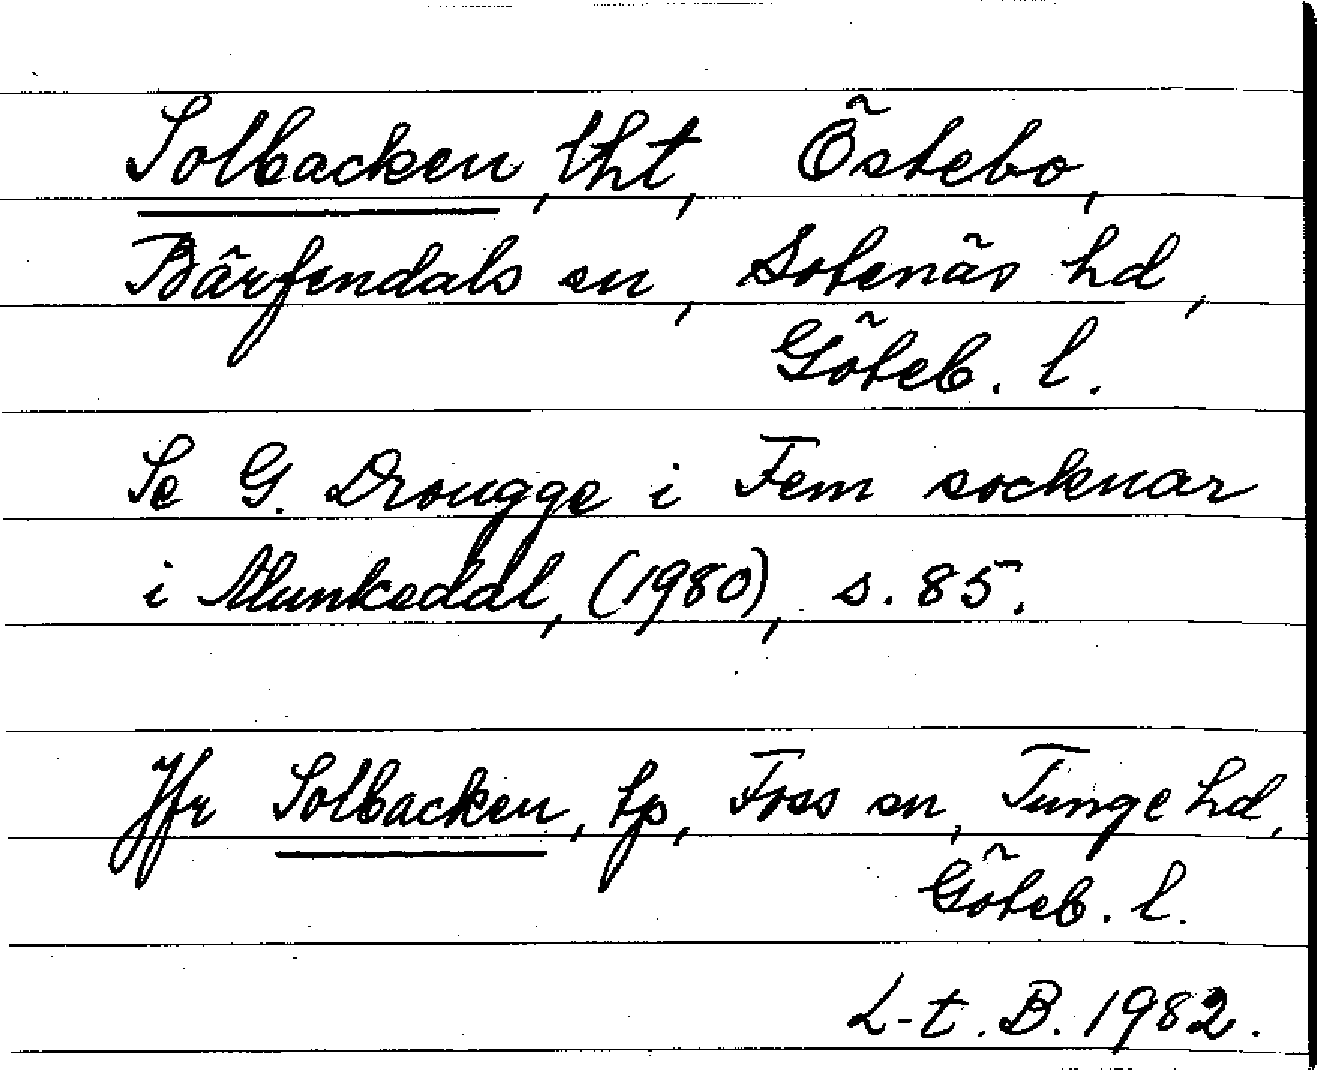 Solbacken, lht, Östebo,
Bärfendals sn, Sotenäs hd,
Göteb. l.
Se G. Drougge i Fem socknar
i Munkedal, (1980), s. 85.
Jfr Solbacken, tp, Foss sn, Tunge hd,
Göteb. l.
L-t. B. 1982.